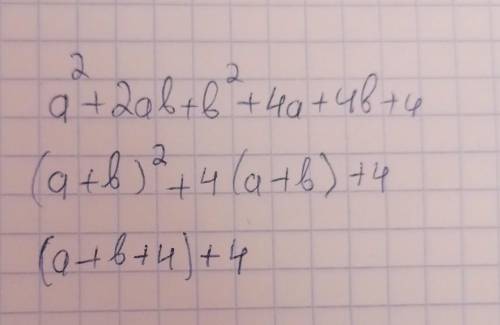 a² + 2ab + b² + 4a + 4b + 4
(a + b)² + 4(a + b) + 4
(a + b + 4) + 4